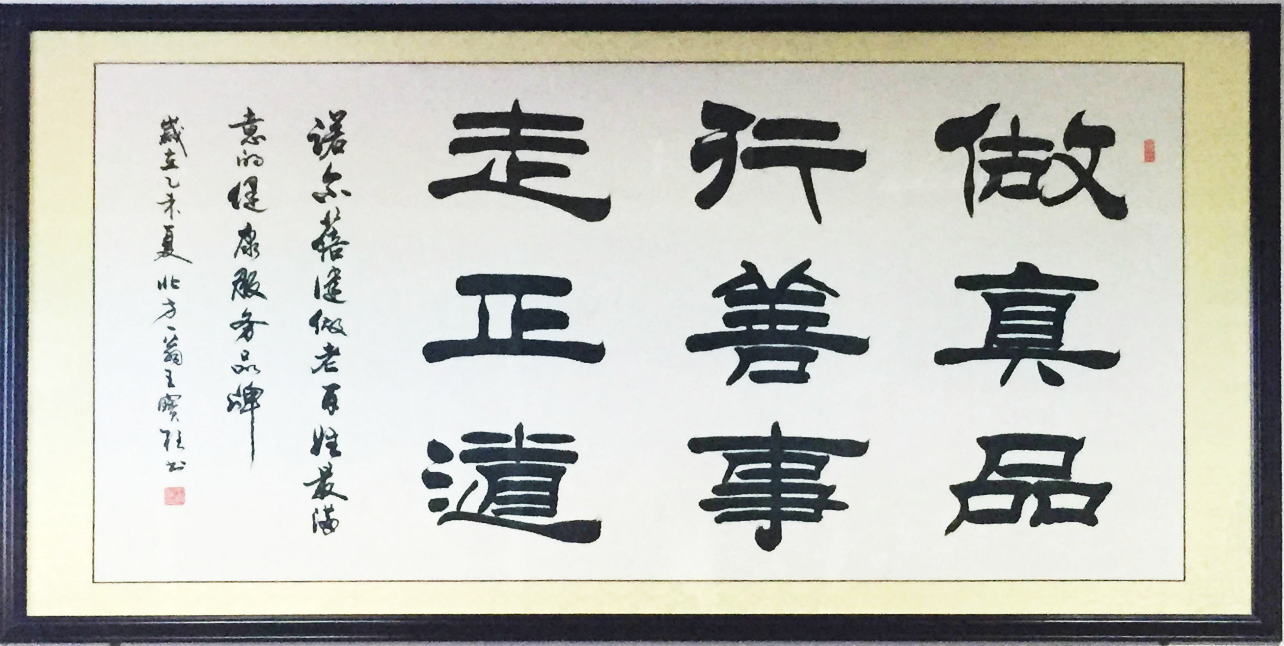 做真品
行善事
走正道
诺尔蓓健做老百姓最满
意的健康服务品牌
岁在乙未夏北方一翁王宝柱书